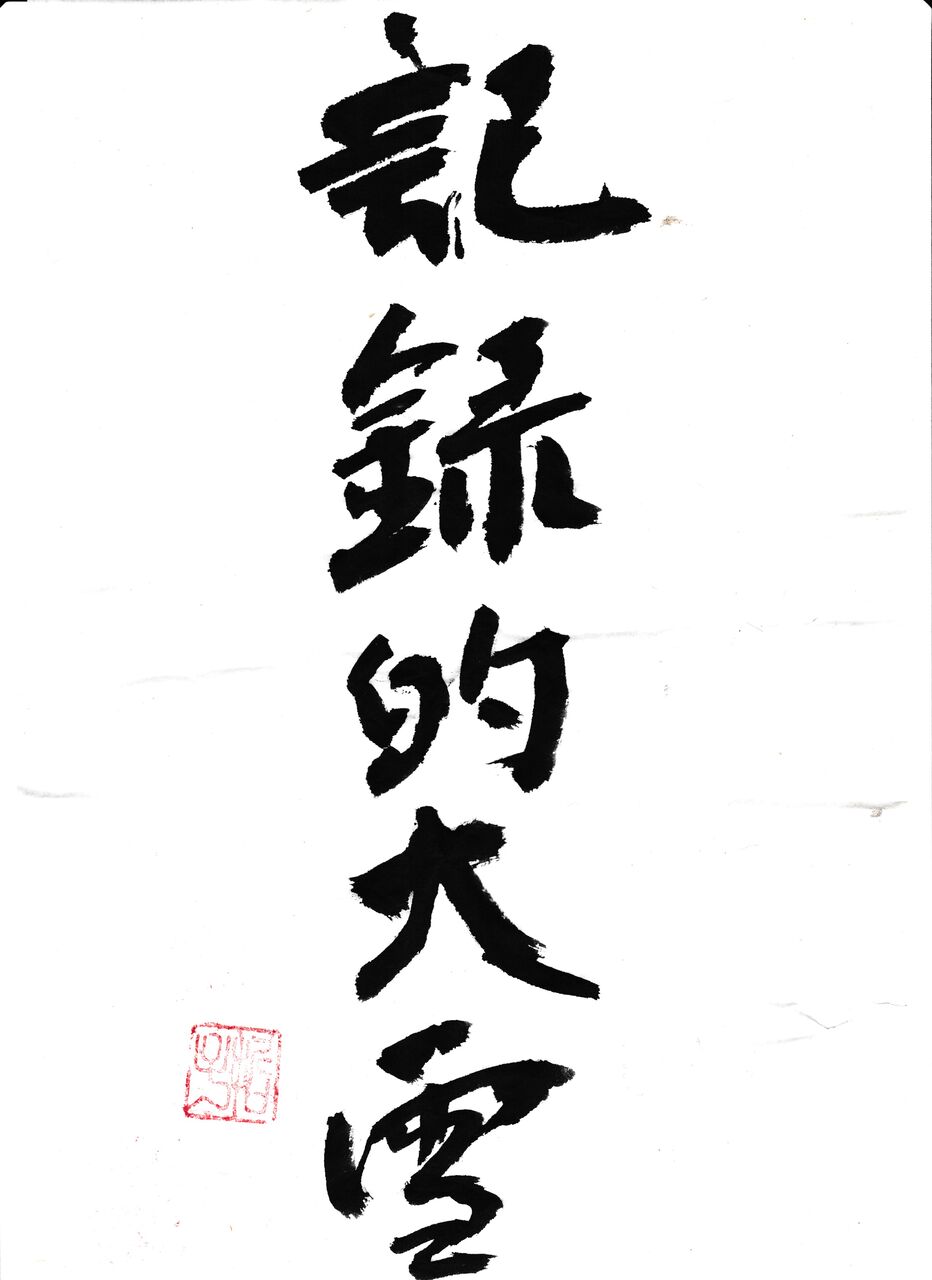 記錄的大雪